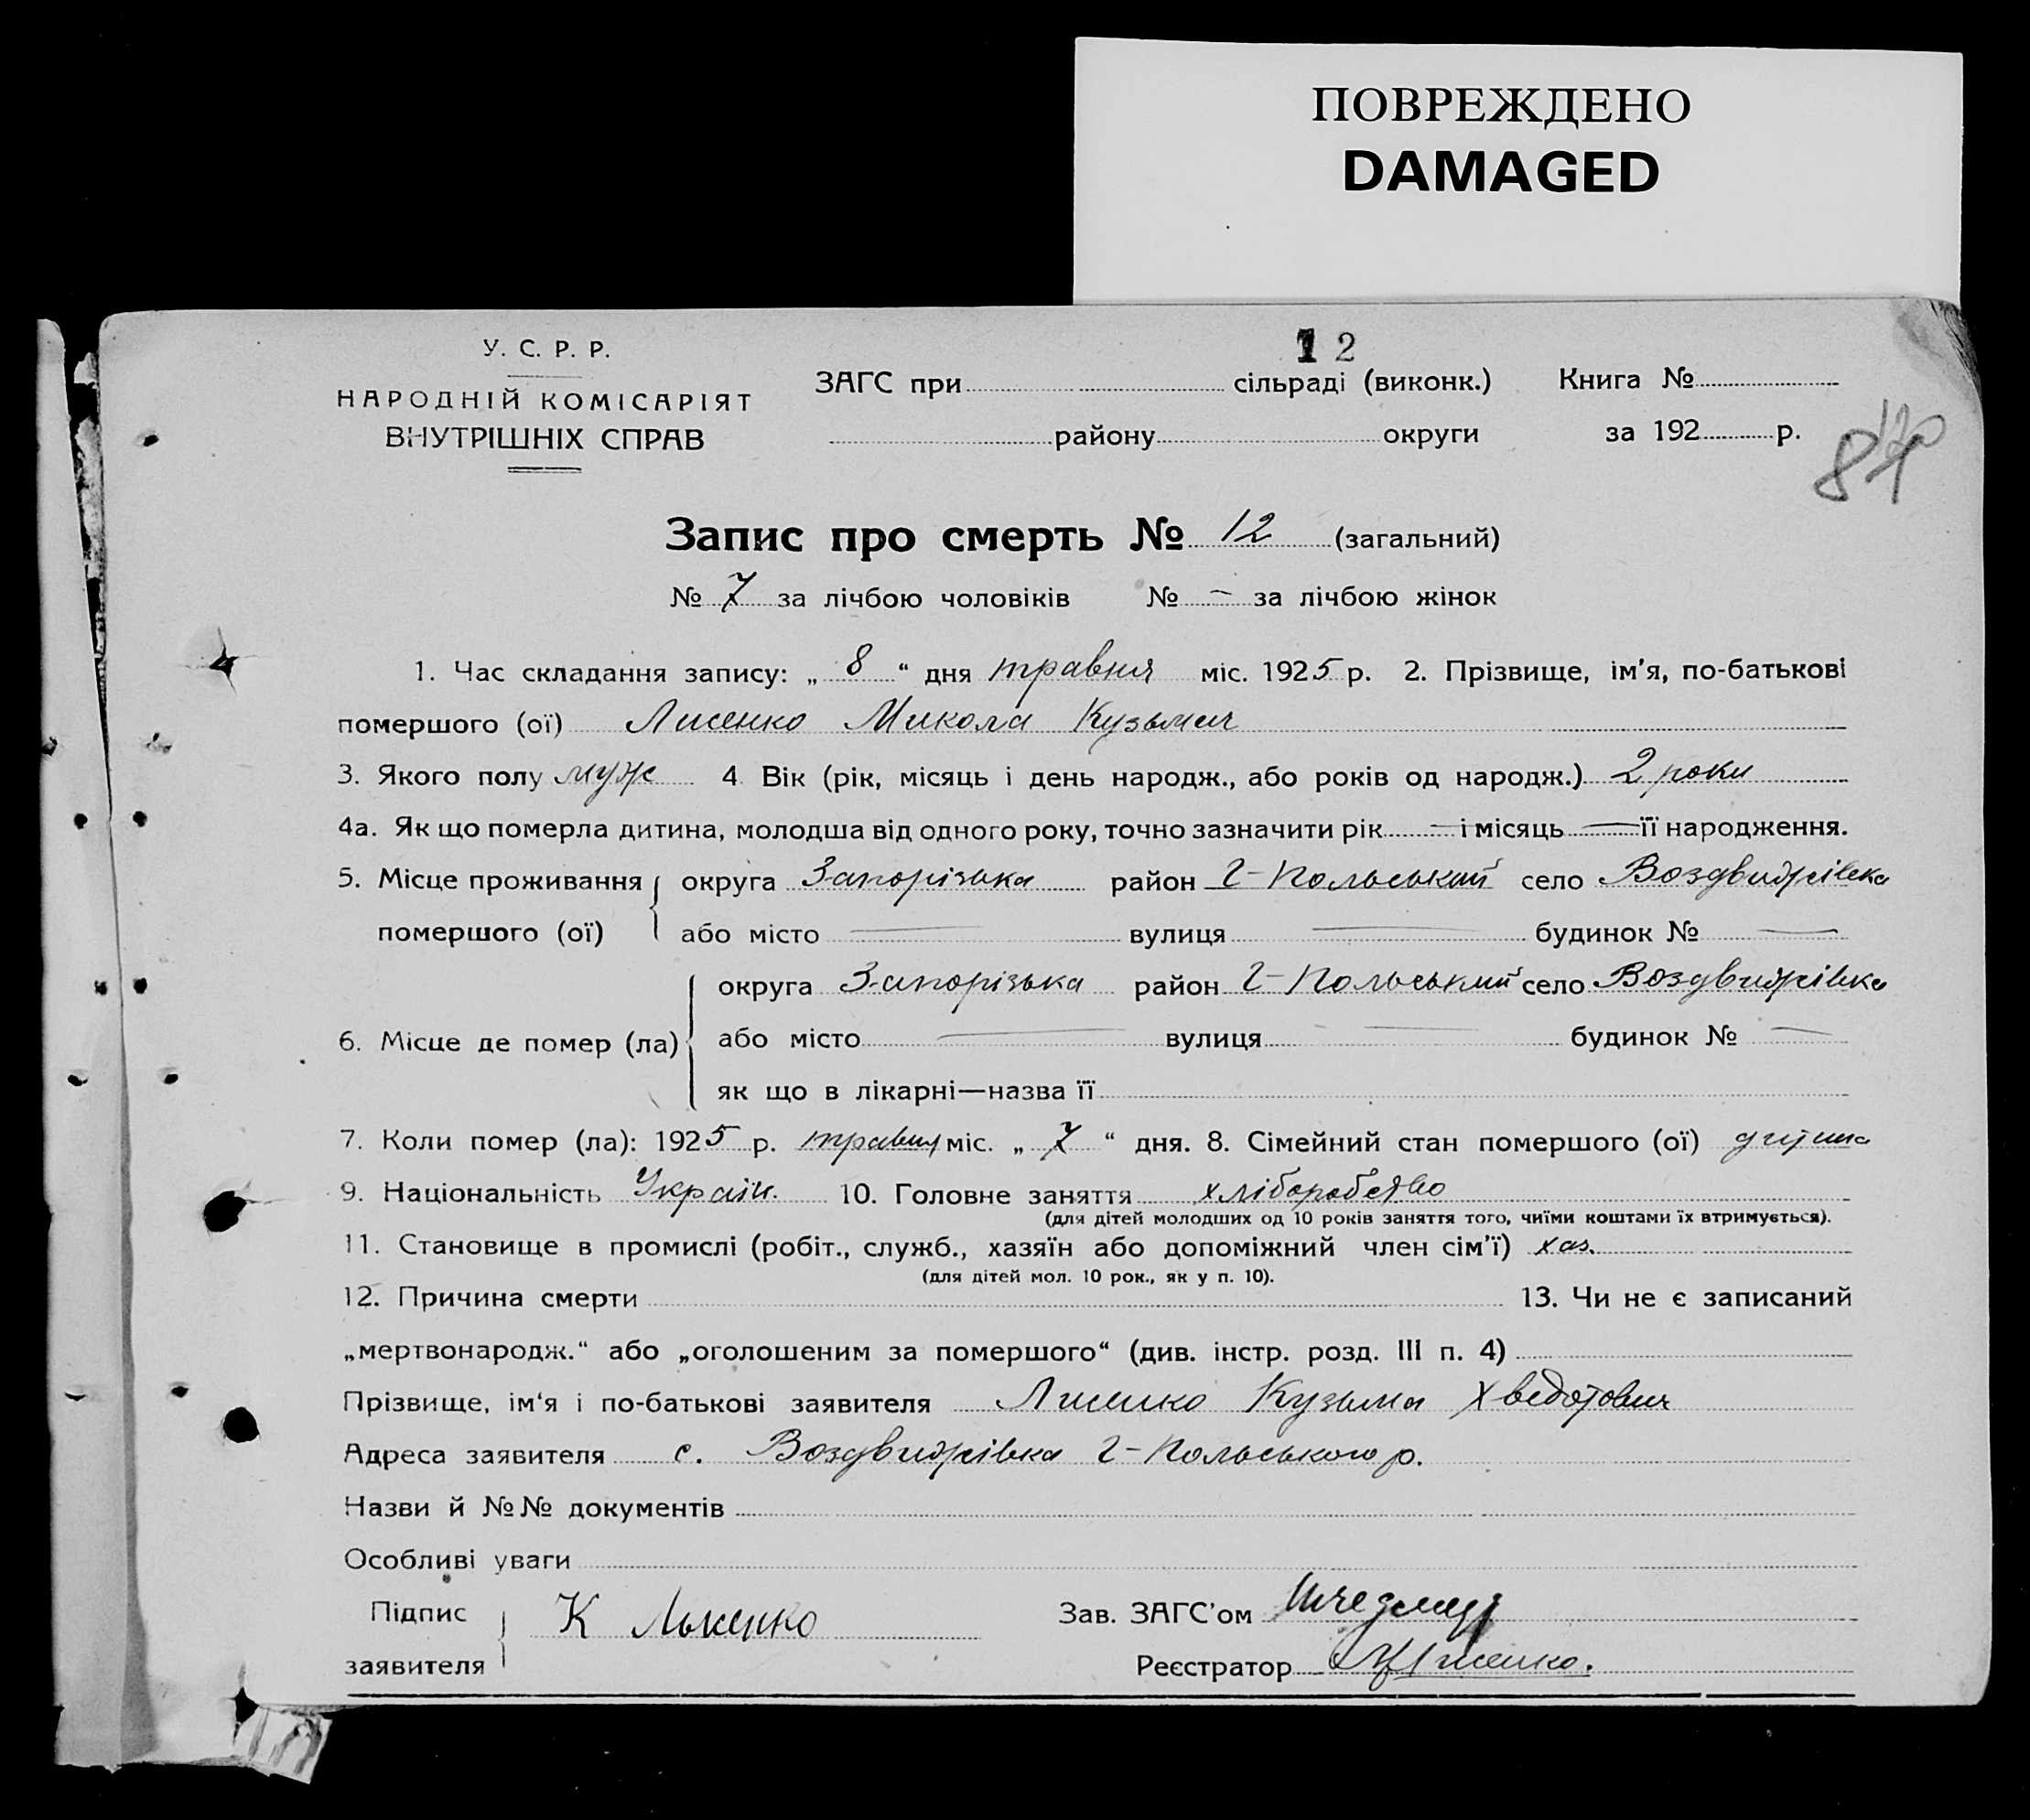 ПОВРЕЖДЕНО
DAMAGED
12
У. С. Р. Р.
НАРОДНІЙ КОМІСАРІЯТ
ВНУТРІШНІХ СПРАВ
ЗАГС при сільраді (виконк.) Книга №
району округи за 192 р.
Запис про смерть № 12 (загальний)
№ 7 за лічбою чоловіків № – за лічбою жінок
1. Час складання запису: „ 8 “ дня травня міс. 1925 р. 2. Прізвище, ім'я, по-батькові
помершого (ої) Лисенко Микола Кузьмич
3. Якого полу муж 4 Вік (рік, місяць і день народж., або років од народж.) 2 роки
4а. Як що померла дитина, молодша від одного року, точно зазначити рік — і місяць — її народження.
5. Місце проживання округа Запорізька район Г-Польський село Воздвижівка
помершого (ої) або місто — вулиця — будинок № —
округа Запорізька район Г-Польський село Воздвижівка
6. Місце де помер (ла) або місто — вулиця — будинок № —
як що в лікарні—назва її
7. Коли помер (ла): 1925 р. травня міс. „ 7 “ дня. 8. Сімейний стан помершого (ої) дитина
9. Національність Україн. 10. Головне заняття хліборобство
(для дітей молодших од 10 років заняття того, чиїми коштами їх втримується).
11. Становище в промислі (робіт., служб., хазяїн або допоміжний член сім'ї) хаз.
(для дітей мол. 10 рок., як у п. 10).
12. Причина смерти 13. Чи не є записаний
„мертвонародж.“ або „оголошеним за помершого“ (див. інстр. розд. III п. 4)
Прізвище, ім'я і по-батькові заявителя Лисенко Кузьма Хведотович
Адреса заявителя с. Воздвижівка Г-Польського р.
Назви й №№ документів
Особливі уваги
Підпис К Лысенко Зав. ЗАГС'ом
заявителя Реєстратор